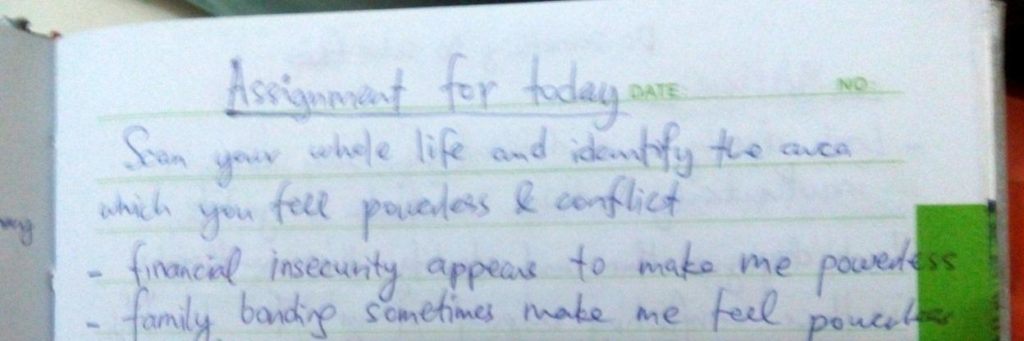 Assignment for today DATE: NO:
Scan your whole life and identify the area
which you feel powerless & conflict
- financial insecurity appears to make me powerless
- family bonding sometimes make me feel powerless